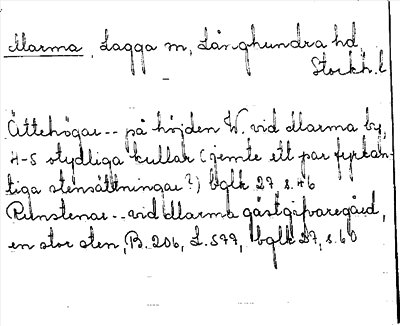 Marma, Lagga sn, Långhundra hd,
Stockh. l
Ättehögar -- på höjden W. vid Marma by,
4-5 otydliga kullar (jemte ett par fyrkan-
tiga stensättningar?) bglk 27, s. 46
Runstenar -- vid Marma gästgifvaregård,
en stor sten, B. 206, L. 599, bglk 27, s. 60